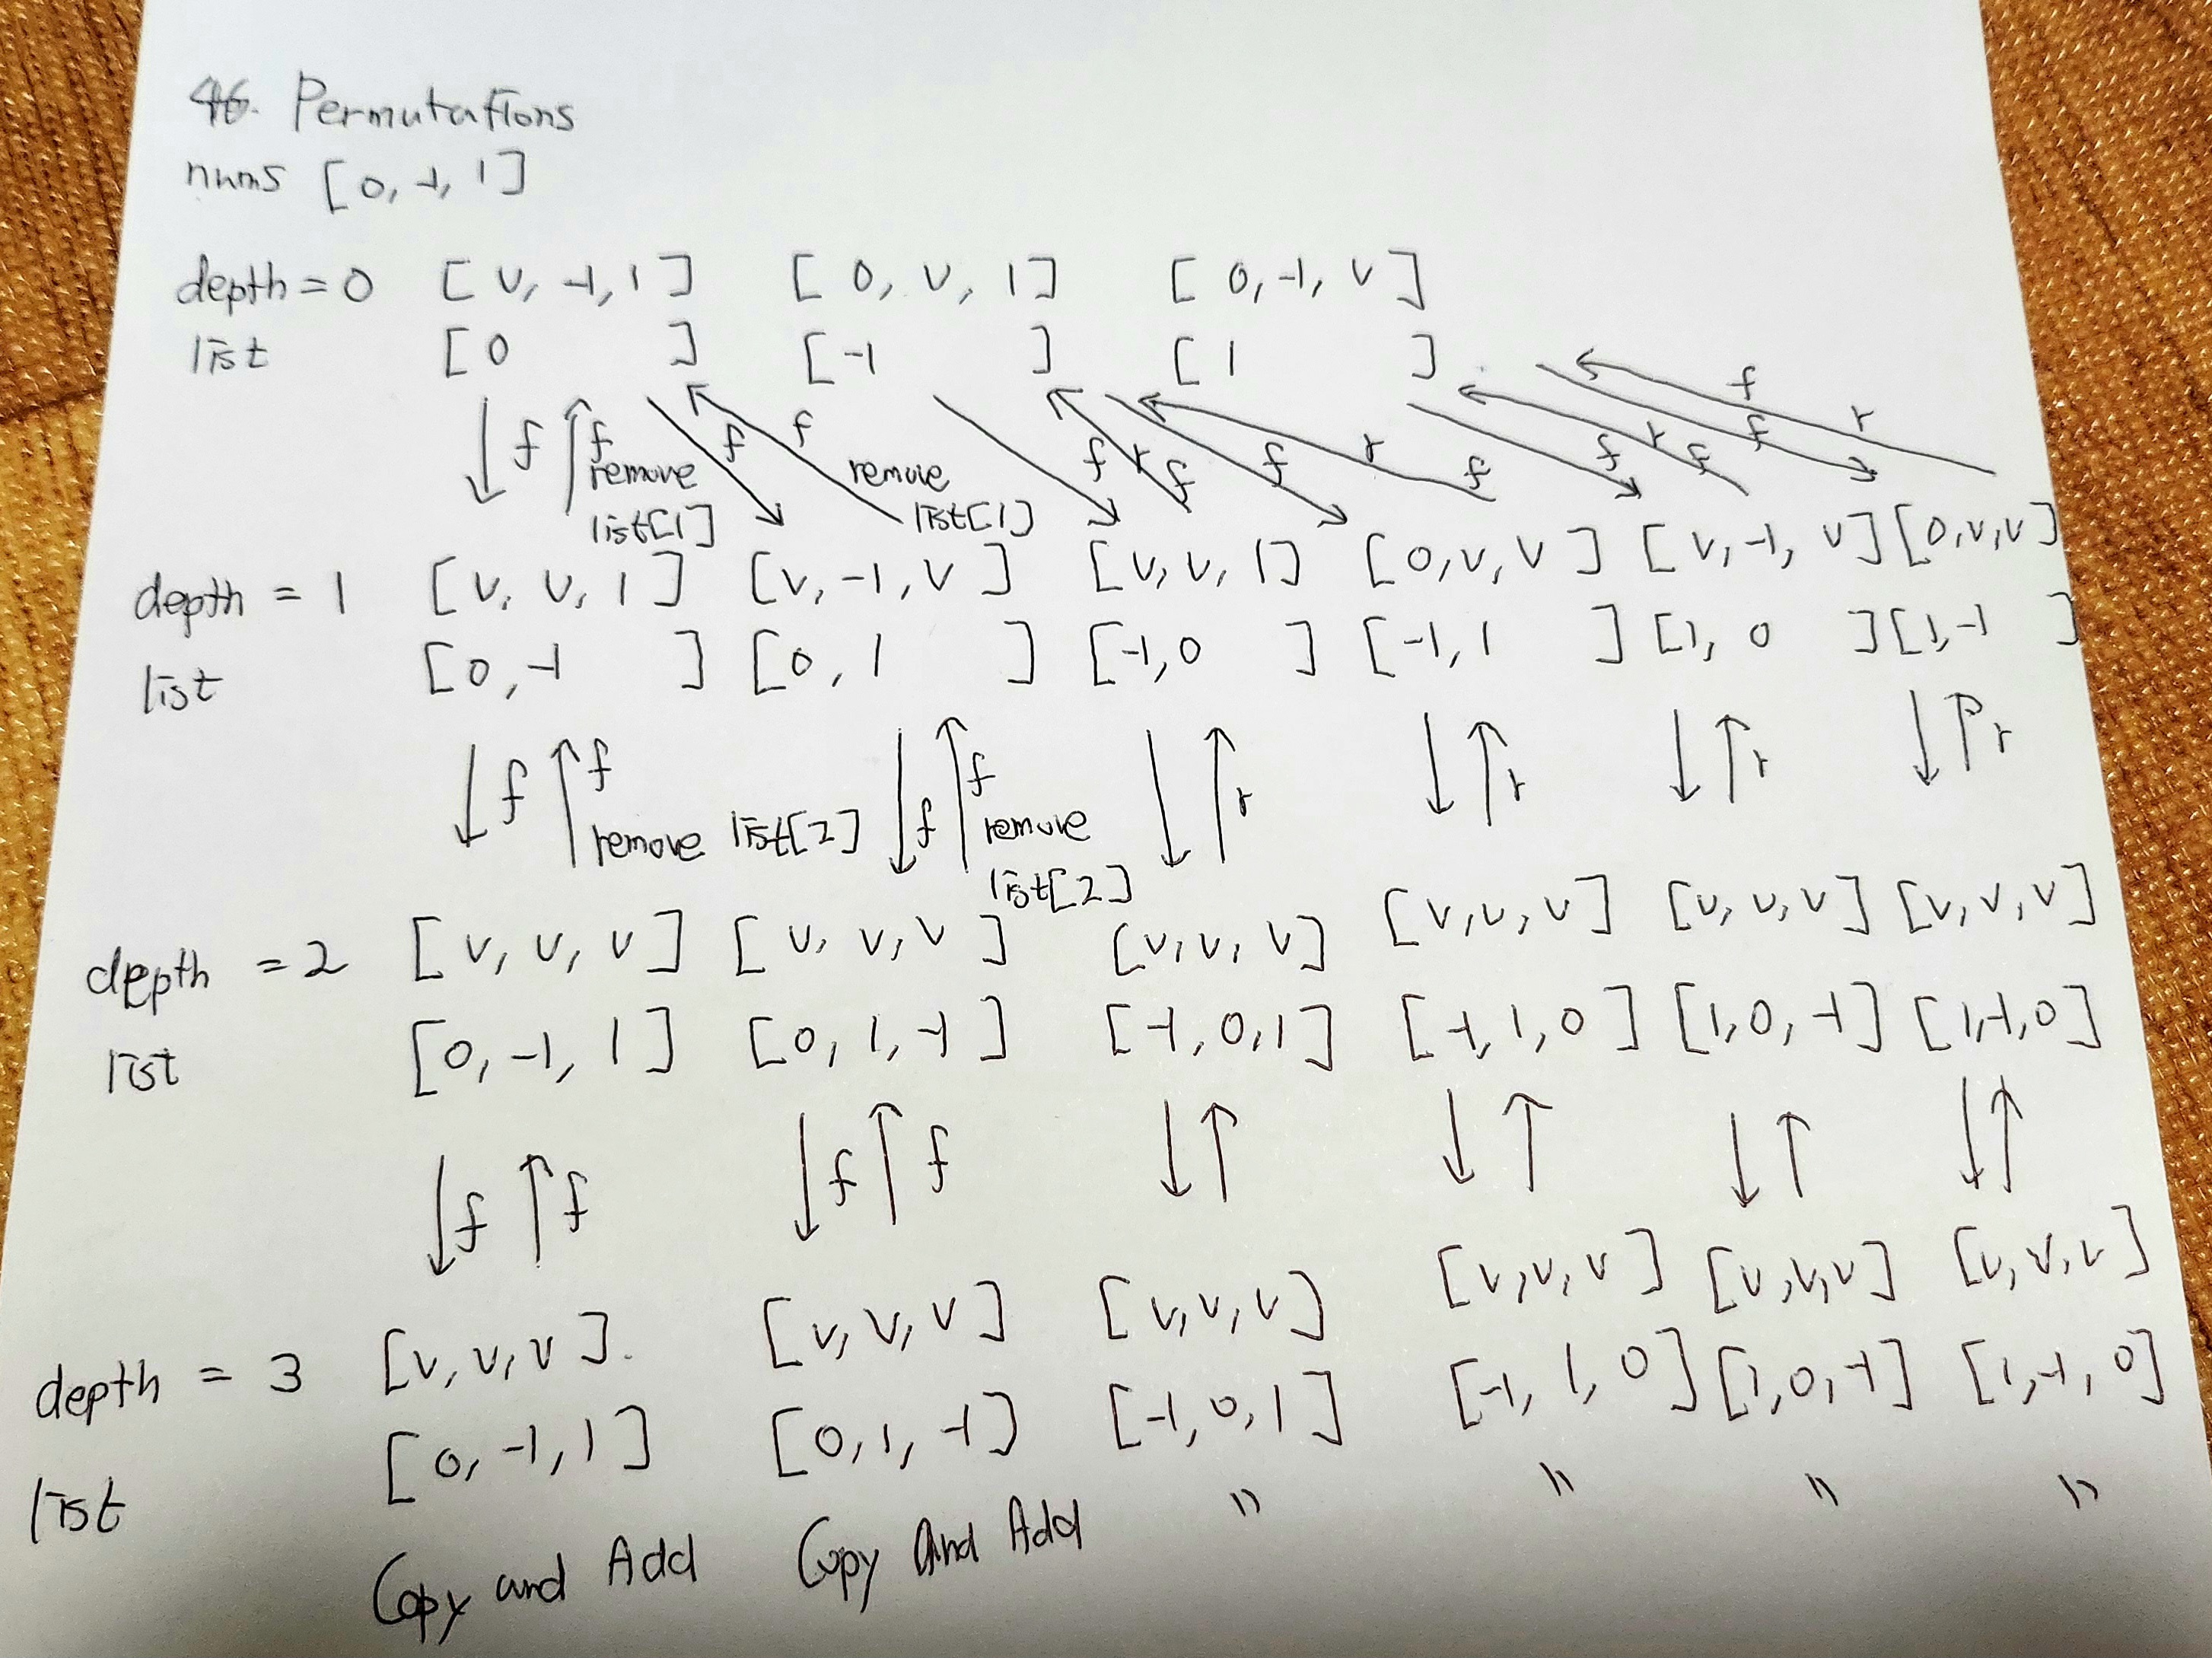 46. Permutations
nums [0, -1, 1]
depth = 0 [v, -1, 1] [0, v, 1] [0, -1, v]
list [0 ] [-1 ] [1 ]
f f f f f r f f r f f r f f r
remove remove
list[1] list[1]
depth = 1 [v, v, 1] [v, -1, v] [v, v, 1] [0, v, v] [v, -1, v] [0, v, v]
list [0, -1 ] [0, 1 ] [-1, 0 ] [-1, 1 ] [1, 0 ] [1, -1 ]
f f f f r r r r
remove list[2] remove
list[2]
depth = 2 [v, v, v] [v, v, v] [v, v, v] [v, v, v] [v, v, v] [v, v, v]
list [0, -1, 1] [0, 1, -1] [-1, 0, 1] [-1, 1, 0] [1, 0, -1] [1, -1, 0]
f f f f
depth = 3 [v, v, v] [v, v, v] [v, v, v] [v, v, v] [v, v, v] [v, v, v]
list [0, -1, 1] [0, 1, -1] [-1, 0, 1] [-1, 1, 0] [1, 0, -1] [1, -1, 0]
Copy and Add Copy And Add " " " "